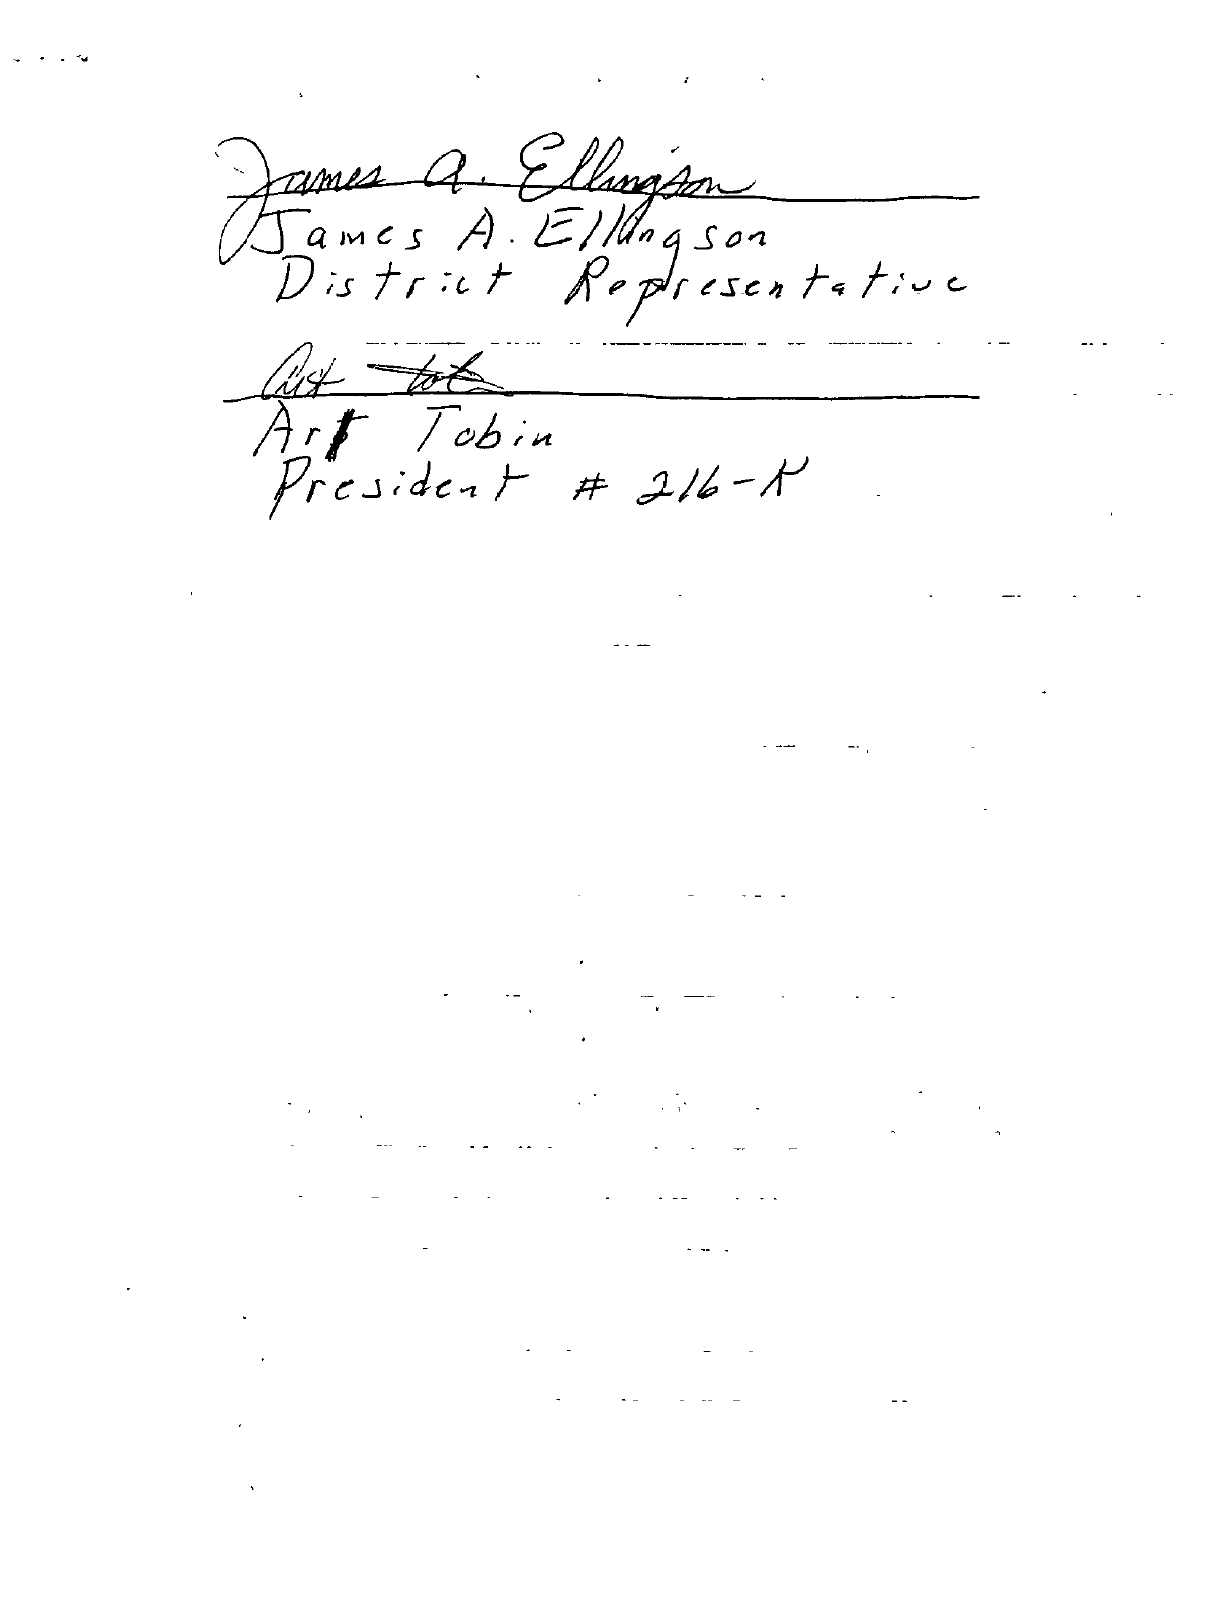 James A. Ellingson
James A. Ellingson
District Representative
Art Tobin
Art Tobin
President # 216-K